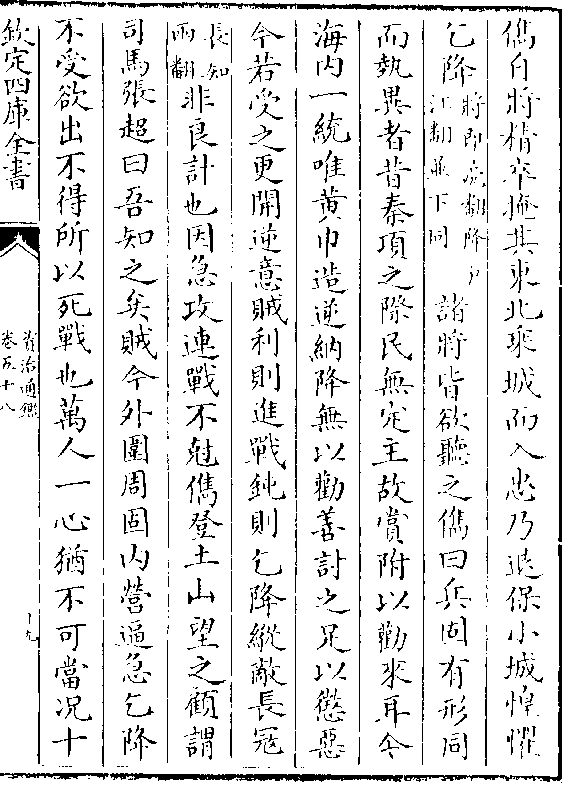 儁自將精卒掩其東北乗城而入忠乃退保小城惶懼
乞降將即亮翻降户江翻並下同諸將皆欲聽之儁曰兵固有形同
而埶異者昔秦項之際民無定主故賞附以勸來耳今
海内一統唯黄巾造逆納降無以勸善討之足以懲惡
今若受之更開逆意賊利則進戰鈍則乞降縱敵長冦
長知兩翻非良計也因急攻連戰不尅儁登土山望之顧謂
司馬張超曰吾知之矣賊今外圍周固内營逼急乞降
不受欲出不得所以死戰也萬人一心猶不可當况十
欽定四庫全書
資治通鑑
卷五十八
十九